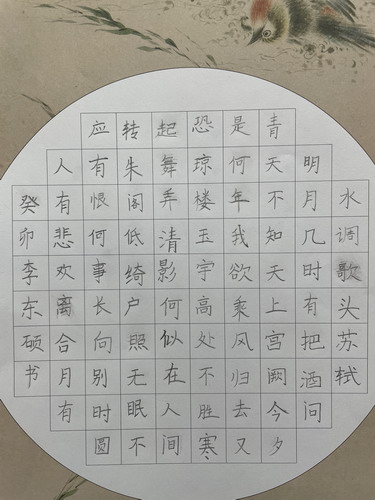 水调歌头苏轼
明月几时有把酒问
青天不知天上宫阙今夕
是何年我欲乘风归去又
恐琼楼玉宇高处不胜寒
起舞弄清影何似在人间
转朱阁低绮户照无眠不
应有恨何事长向别时圆
人有悲欢离合月有
癸卯李东硕书